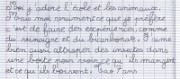 Moi j'adore l'école et les animaux.
Mais mon moment ce que je préfère
c'est de faire des expériences, comme
du vinaigre et du bicarbonate. J'aime
bien aussi attraper des insectes dans
une boîte pour voir ce qu'ils mangent
et ce qu'ils boivent. Sa 7 ans